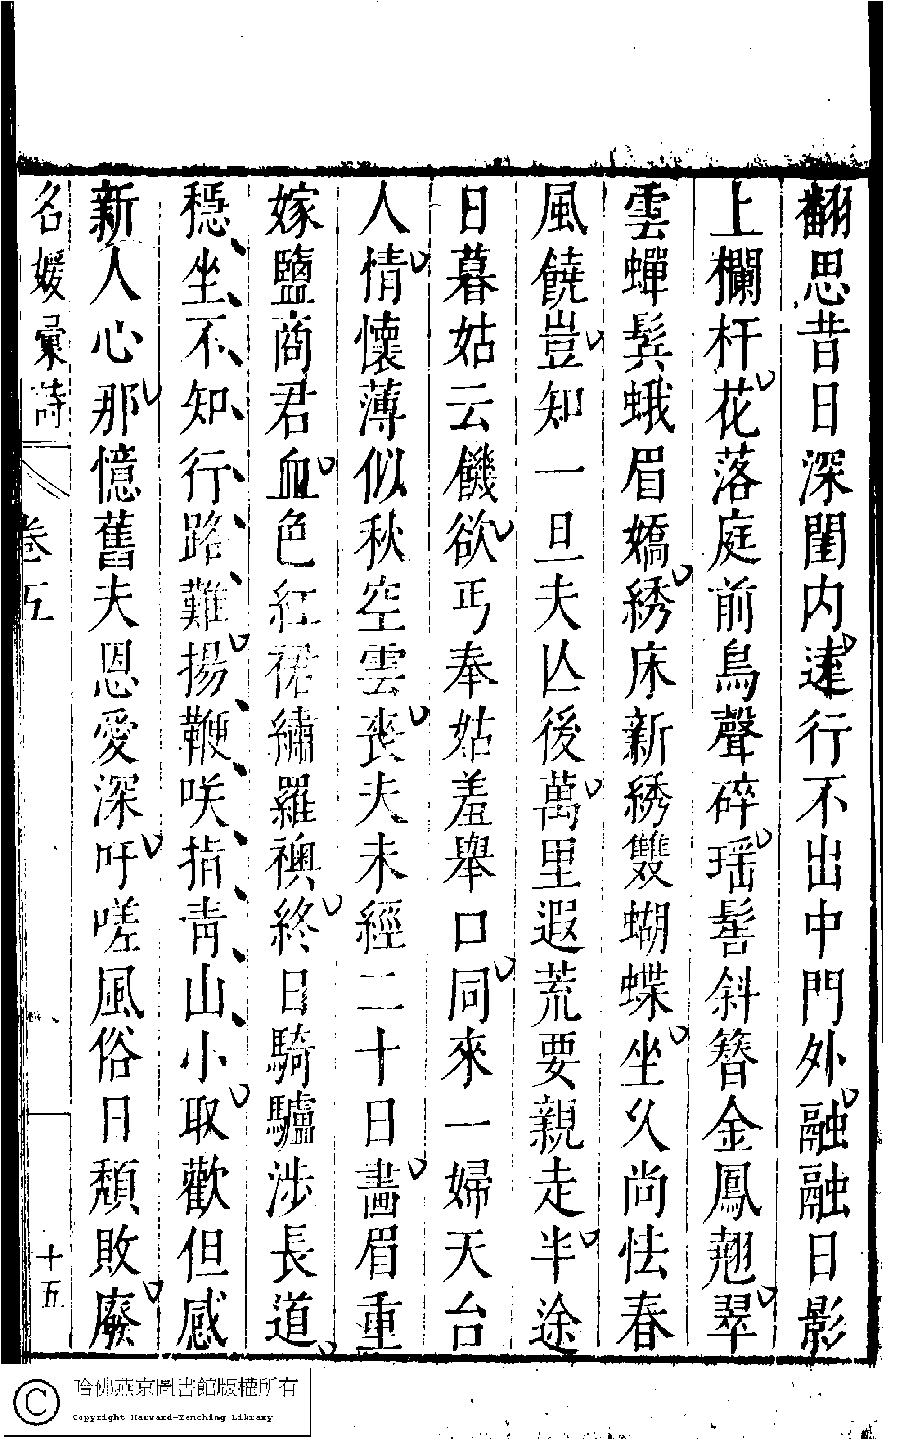 翻思昔日深閨内逺行不出中門外融融日影
上欄杆花落庭前鳥聲碎瑶髻斜簪金鳳翹翠
雲蟬鬂蛾眉嬌綉床新綉雙蝴蝶坐久尚怯春
風饒豈知一旦夫亾後萬里遐荒要親走半途
日暮姑云饑欲丐奉姑羞舉口同來一婦天台
人情懷薄似秋空雲喪夫未經二十日畵眉重
嫁鹽商君血色紅裙繡羅襖終日騎驢涉長道
穏坐不知行路難揚鞭咲指青山小取歡但感
新人心那憶舊夫恩愛深吁嗟風俗日頽敗廢
名媛彙詩 卷五 十五
哈佛燕京圖書館版權所有
Copyright Harvard-Yenching Library